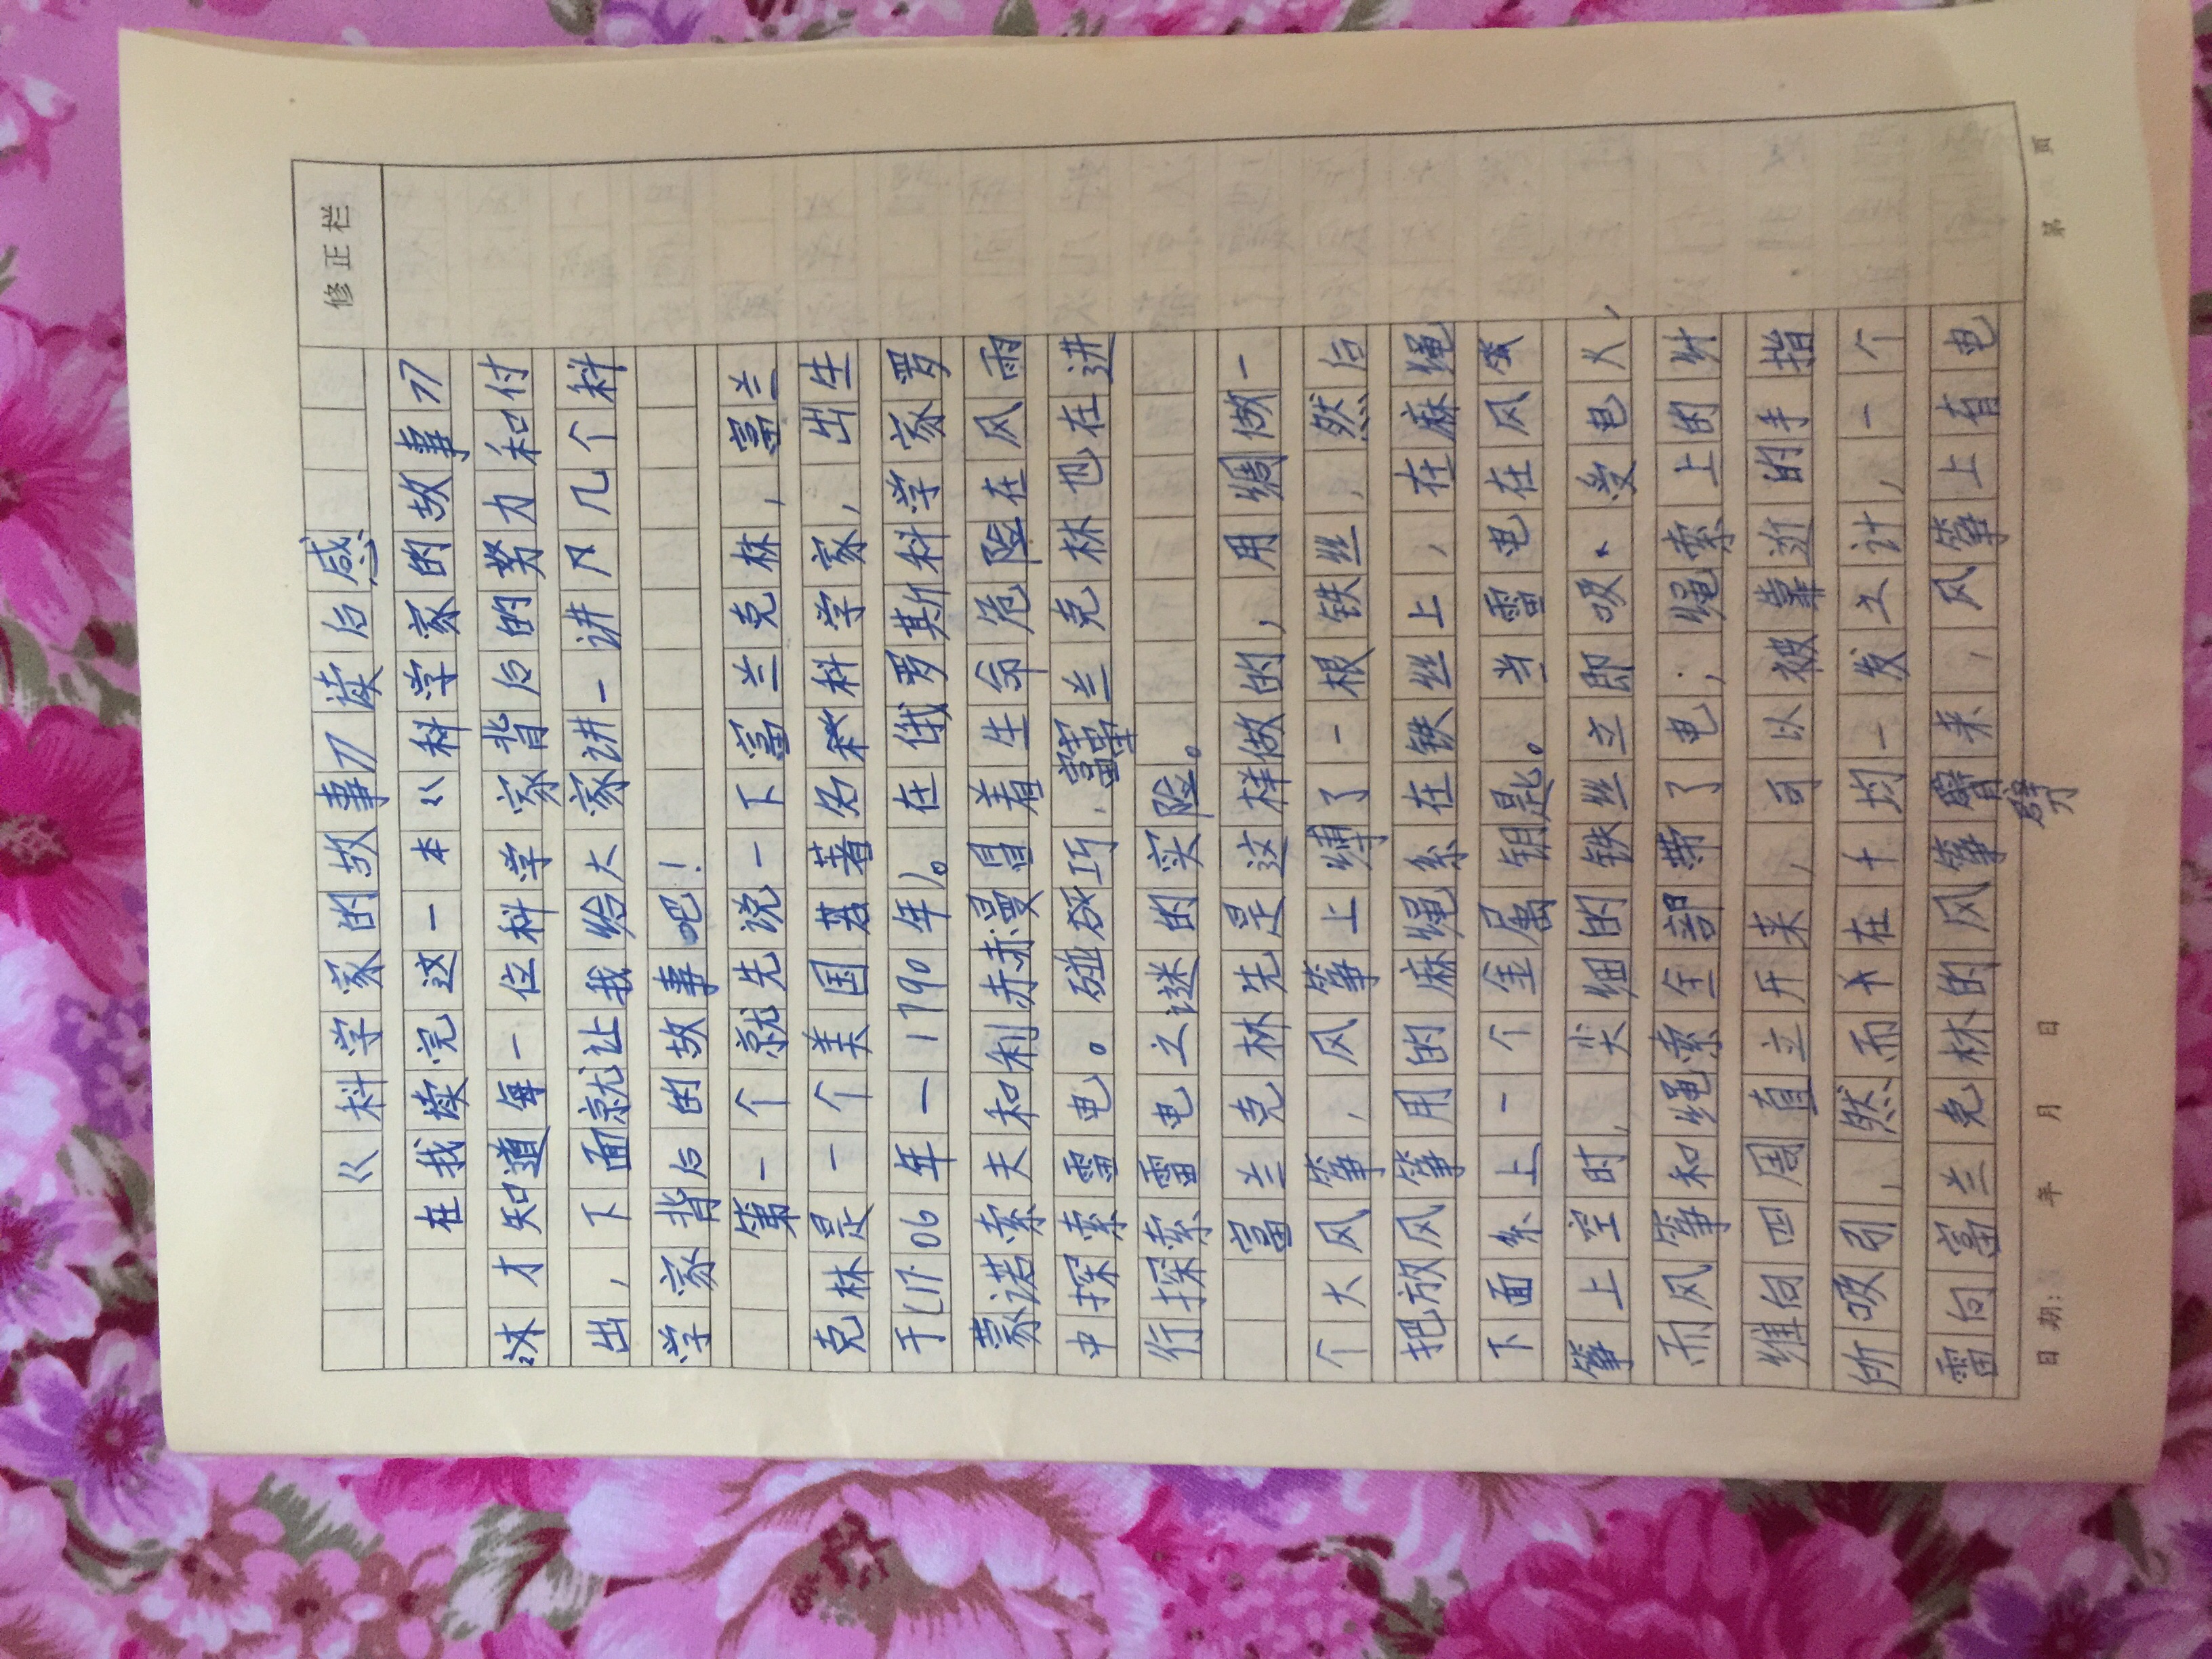 修正栏
《科学家的故事》读后感
在我读完这一本《科学家的故事》
次才知道每一位科学家背后的努力和付
出，下面就让我给大家讲一讲几个科
学家背后的故事吧！
第一个就先说一下富兰克林，富兰
克林是一个美国著名科学家，出生
于(1706年—1790年)。在俄罗斯科学家罗
蒙诺索夫和利赫曼冒着生命危险在风雨
中探索雷电。碰巧，富兰克林也在进
行探索雷电之谜的实险。
富兰克林先是这样做的，用绸做一
个大风筝，风筝上缚了一根铁丝，然后
把放风筝用的麻绳系在铁丝上，在麻绳
下面系上一个金属钥匙。当雷电在风
筝上空时，尖细的铁丝立即吸受电火，
而风筝和绳索全部带了电，绳索上的纤
维向四周直立开来，可以被靠近的手指
所吸引，然而在千均一发之计，一个
雷向富兰克林的风筝劈来，风筝上有电
日期： 年 月 日
第 页